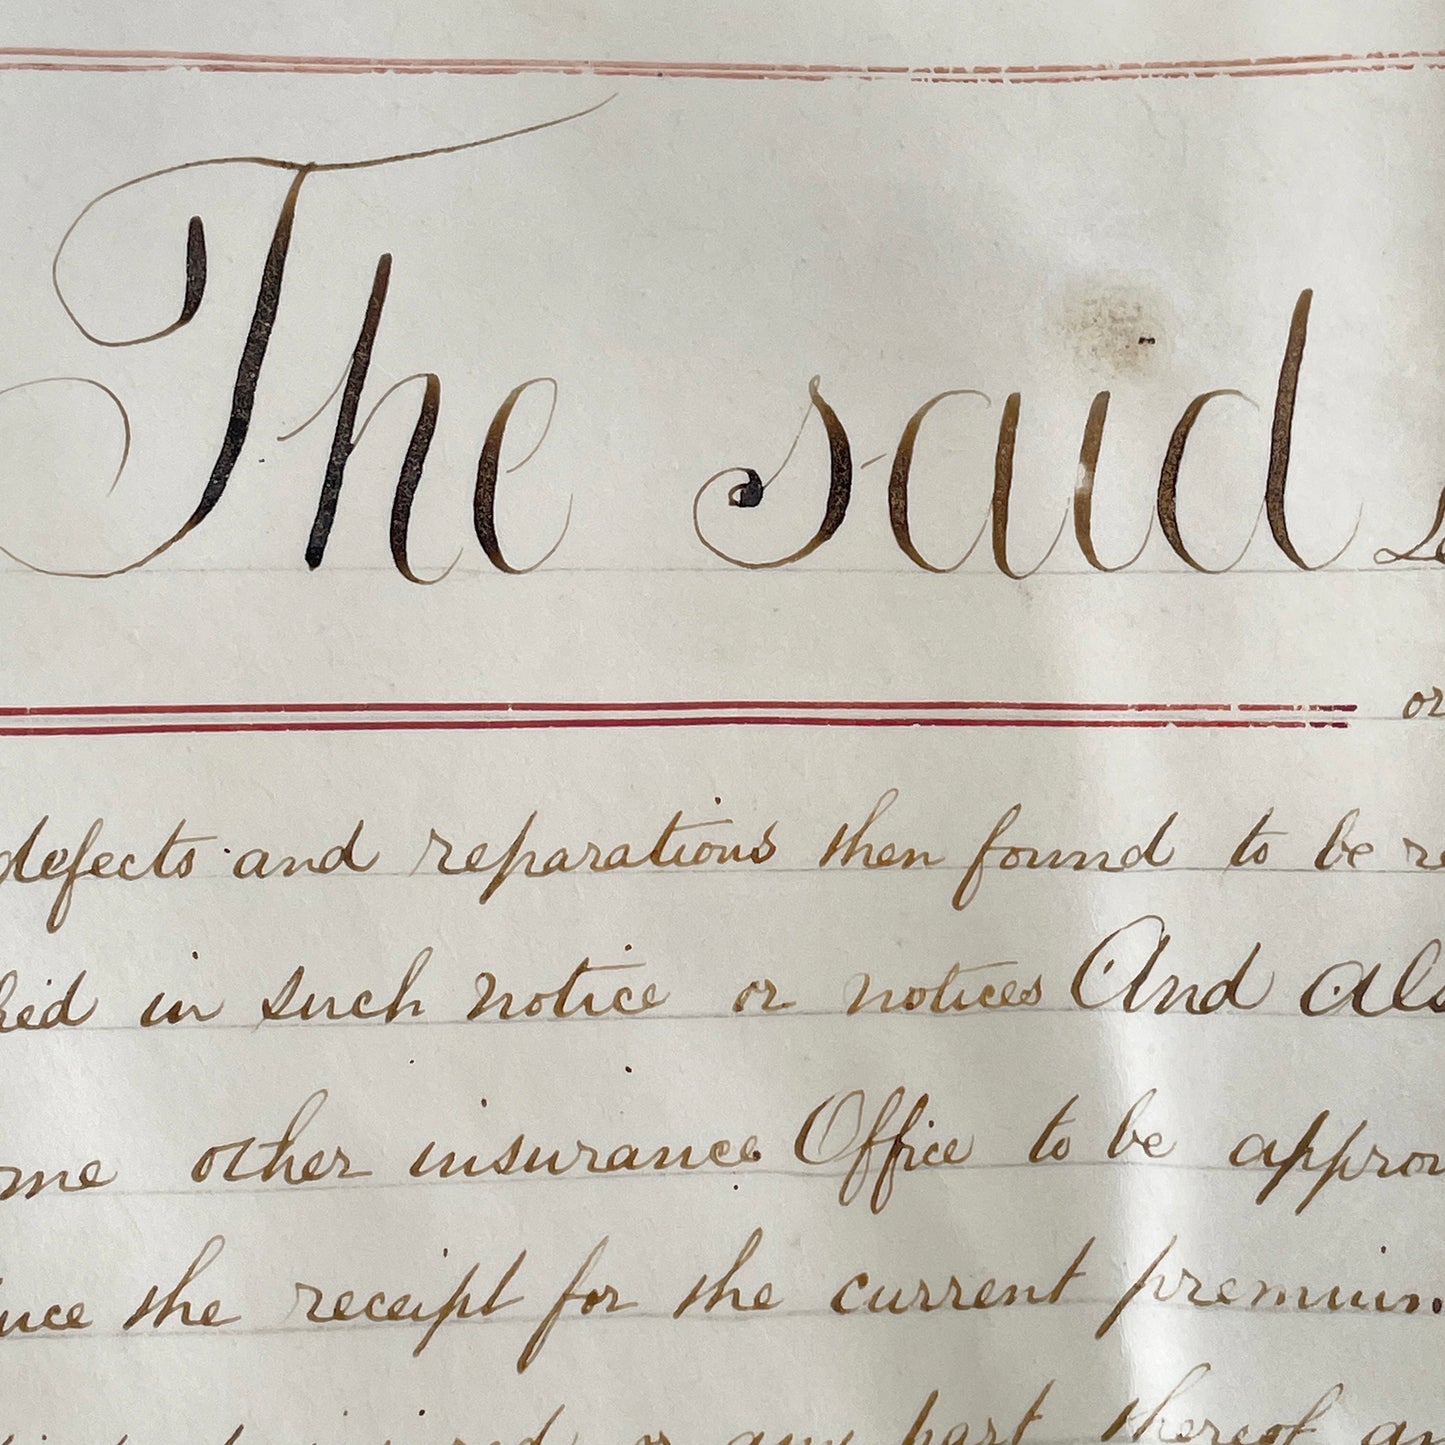 The said
or
defects and reparations then found to be re
in such notice or notices And als
me other insurance Office to be approv
uce the receipt for the current premium
or any part thereof an